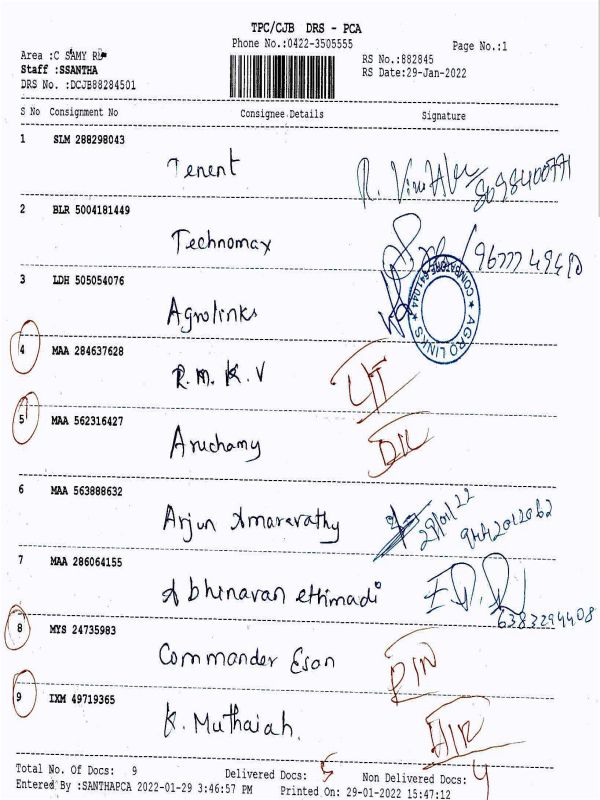 TPC/CJB DRS - PCA
Phone No.:0422-3505555
Page No.:1
Area :C SAMY RD
Staff :SSANTHA
DRS No. :DCJB88284501
RS No.:882845
RS Date:29-Jan-2022
S No Consignment No Consignee Details Signature
1 SLM 288298043
Tenent
R. 8098400771
2 BLR 5004181449
Technomax
3 LDH 505054076
Agrolinks
★ AGRO LINKS ★ COIMBATORE-641 044
4 MAA 284637628
R.M.K.V
5 MAA 562316427
Aruchamy
6 MAA 563888632
Arjun Amaravathy
29/01/22
9442012062
7 MAA 286064155
Abhinavan ethimadi
6383294408
8 MYS 24735983
Commander Esan
9 IXM 49719365
K. Muthaiah.
Total No. Of Docs: 9 Delivered Docs: 5 Non Delivered Docs: 4
Entered By :SANTHAPCA 2022-01-29 3:46:57 PM Printed On: 29-01-2022 15:47:12